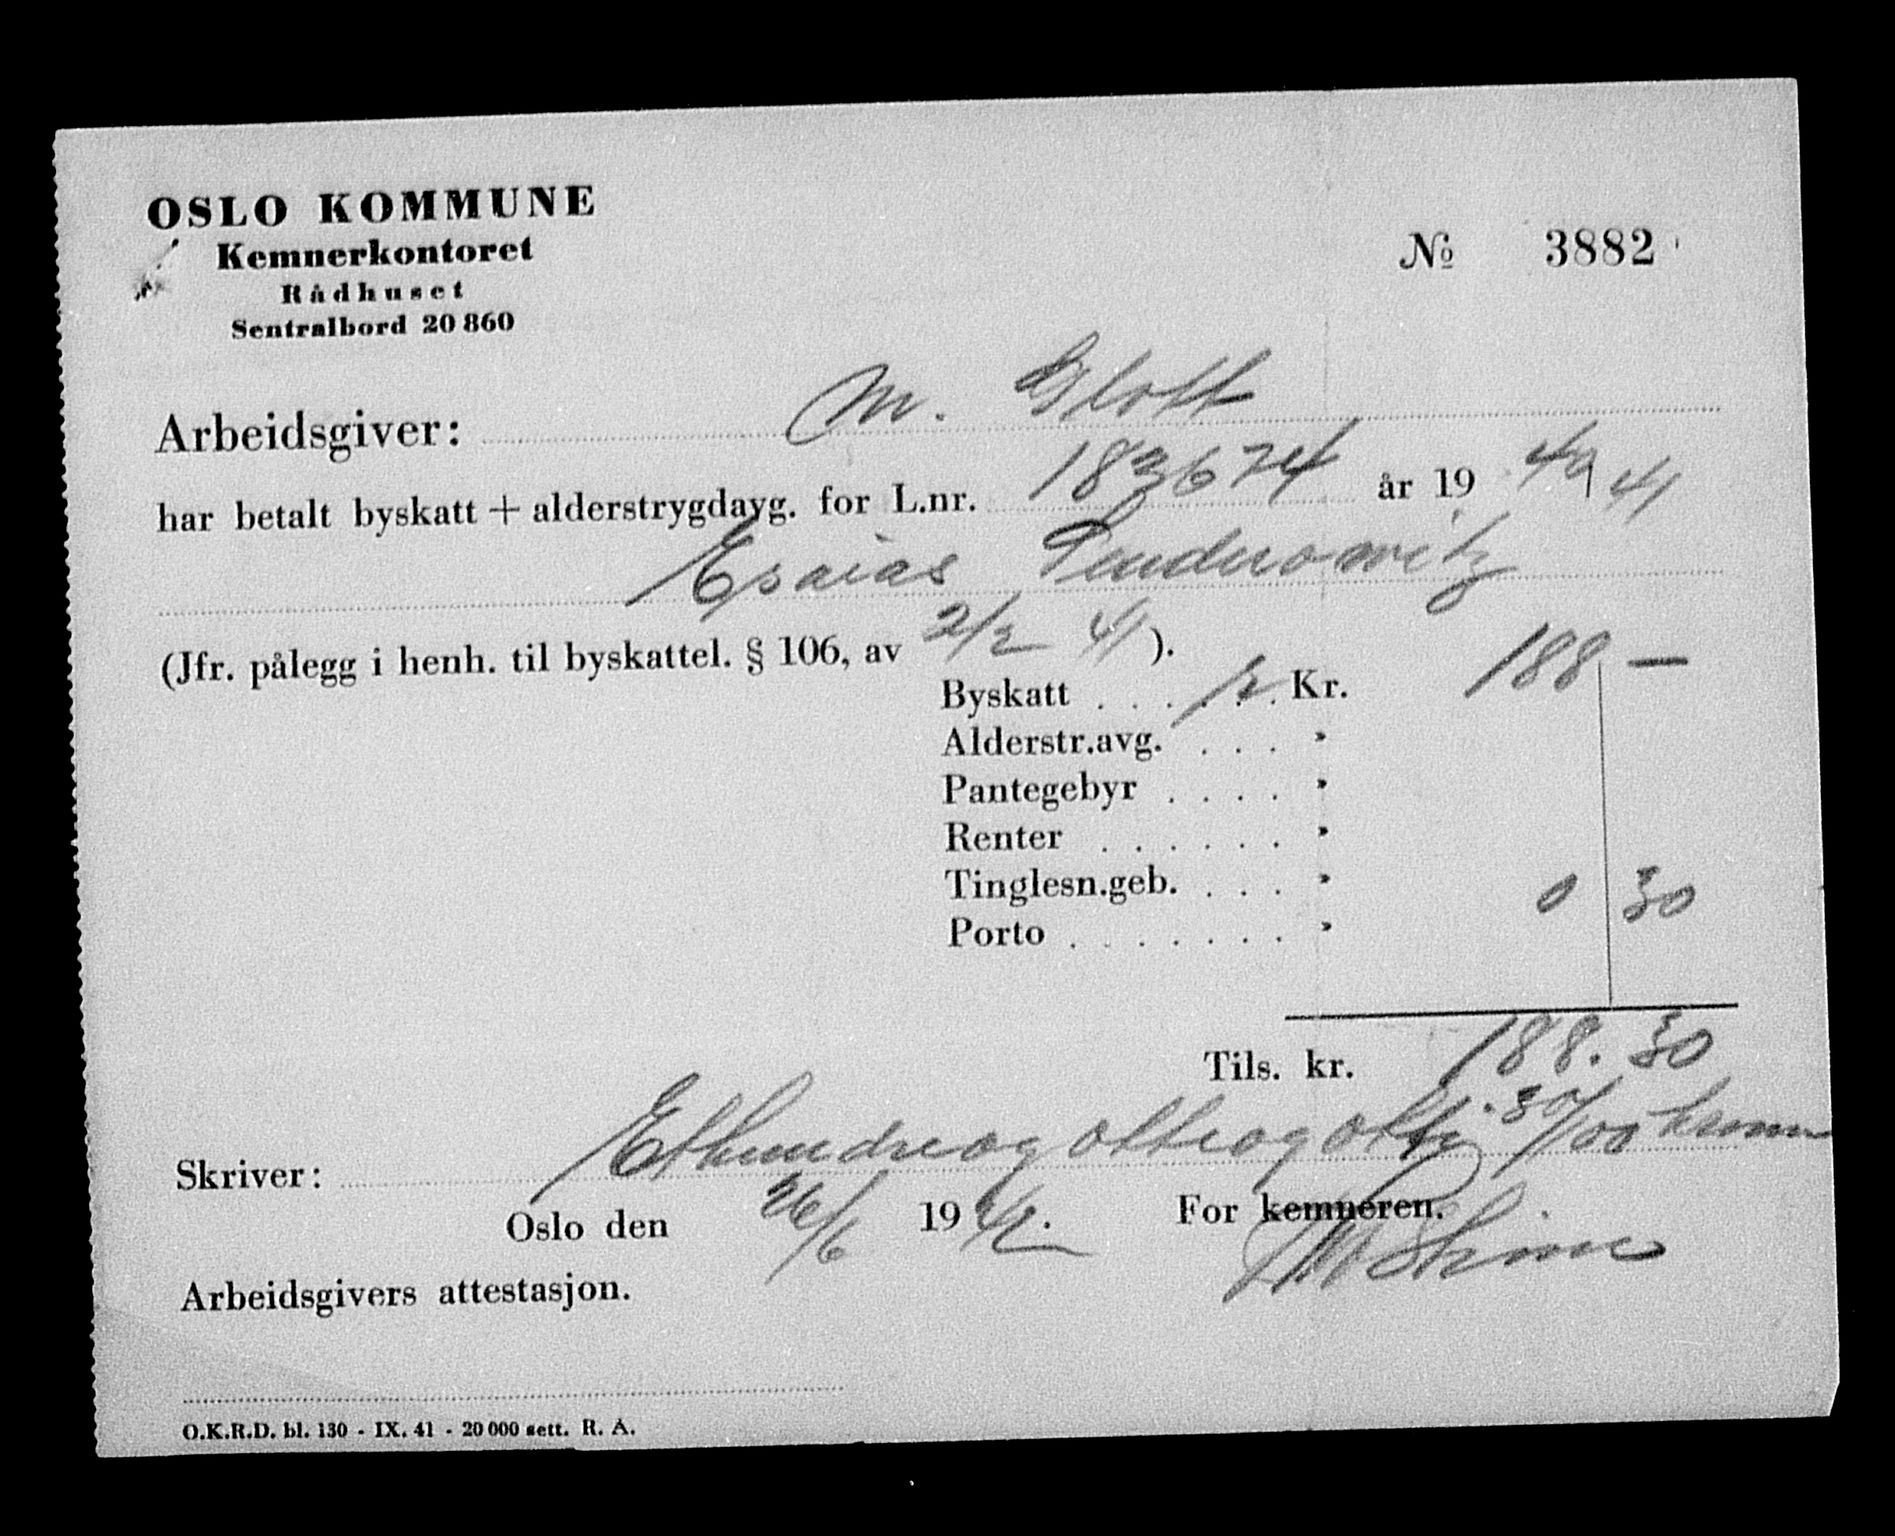 OSLO KOMMUNE
Kemnerkontoret
Rådhuset
Sentralbord 20 860
№ 3882
Arbeidsgiver: M. Glott
har betalt byskatt + alderstrygdavg. for L.nr. 183674 år 19 40 41
Esaias Senderowitz
(Jfr. pålegg i henh. til byskattel. § 106, av 2/2 41 ).
Byskatt . . . . . . Kr. 188 —
Alderstr.avg. . . . "
Pantegebyr . . . . "
Renter . . . . . . "
Tinglesn.geb. . . . " 0 30
Porto . . . . . . . "
Tils. kr. 188.30
Skriver: Etthundreogåtteogåtti 30/100 kroner
Oslo den 26/6 1942. For kemneren.
Arbeidsgivers attestasjon.
O.K.R.D. bl. 130 - IX. 41 - 20 000 sett. R. A.